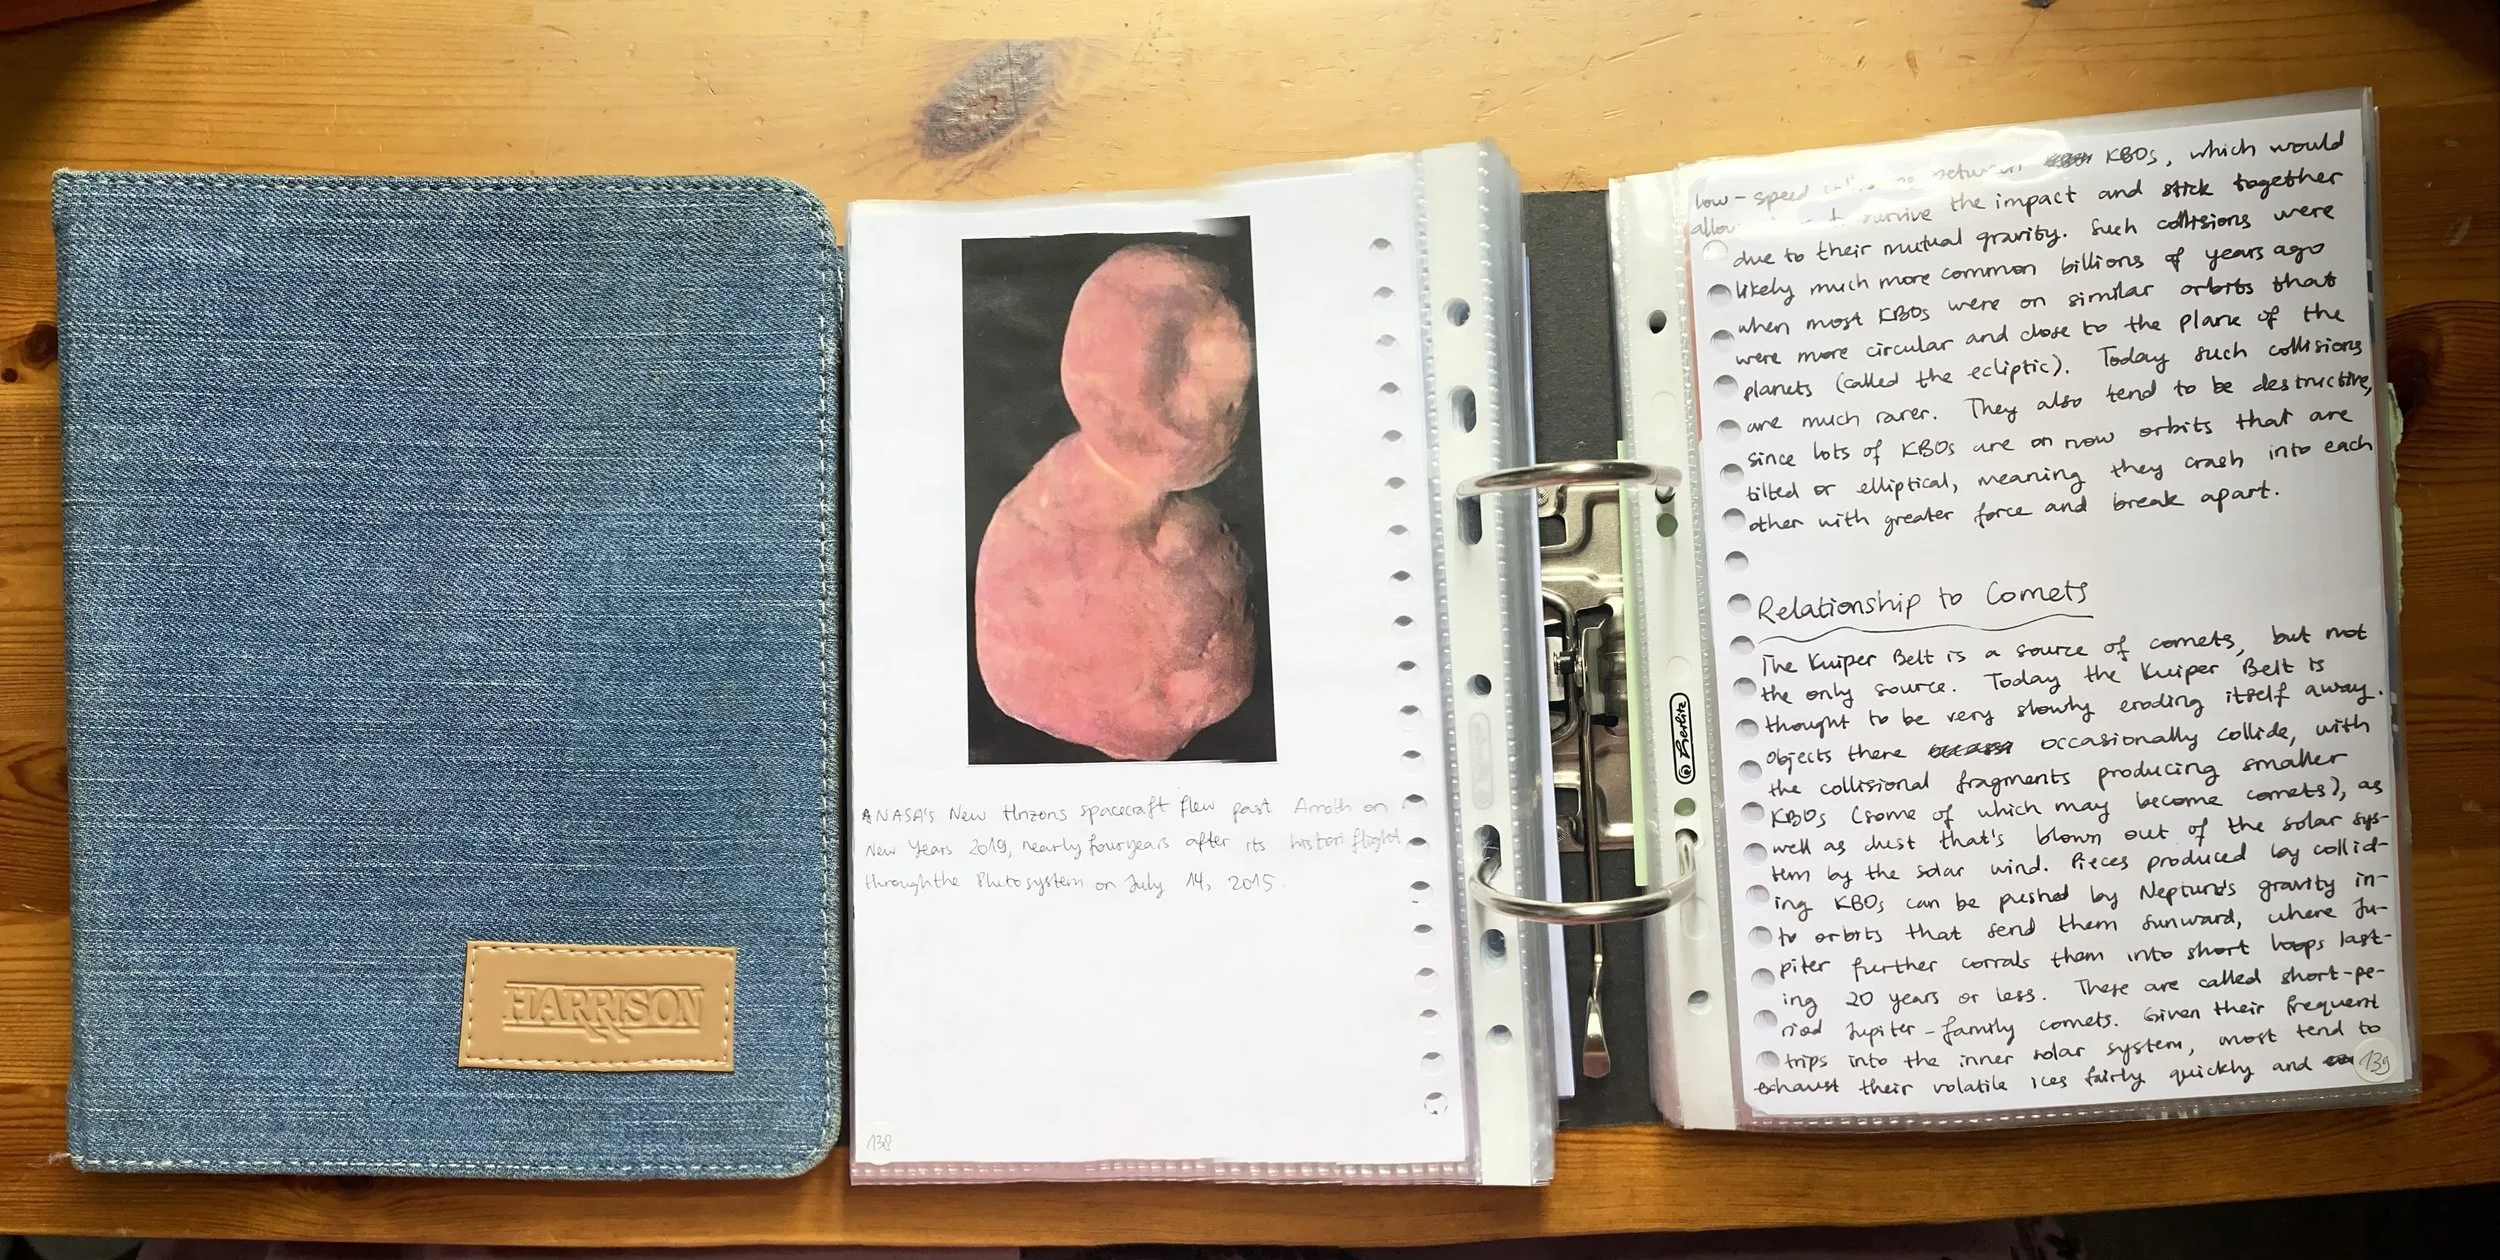 HARRISON
NASA's New Hrizons spacecraft flew past Arroth on
New Years 2019, nearly four years after its histori flight
through the Pluto system on July 14, 2015.
138
low-speed between KBOs, which would
survive the impact and stick together
due to their mutual gravity. Such collisions were
likely much more common billions of years ago
when most KBOs were on similar orbits that
were more circular and close to the plane of the
planets (called the ecliptic). Today such collisions
are much rarer. They also tend to be destructive,
since lots of KBOs are on now orbits that are
tilted or elliptical, meaning they crash into each
other with greater force and break apart.
Relationship to Comets
The Kuiper Belt is a source of comets, but not
the only source. Today the Kuiper Belt is
thought to be very slowly eroding itself away.
Objects there occasionally collide, with
the collisional fragments producing smaller
KBOs (some of which may become comets), as
well as dust that's blown out of the solar sys-
tem by the solar wind. Pieces produced by collid-
ing KBOs can be pushed by Neptune's gravity in-
to orbits that send them sunward, where Ju-
piter further corrals them into short loops last-
ing 20 years or less. These are called short-pe-
riod Jupiter-family comets. Given their frequent
trips into the inner solar system, most tend to
exhaust their volatile ices fairly quickly and
139
herlitz